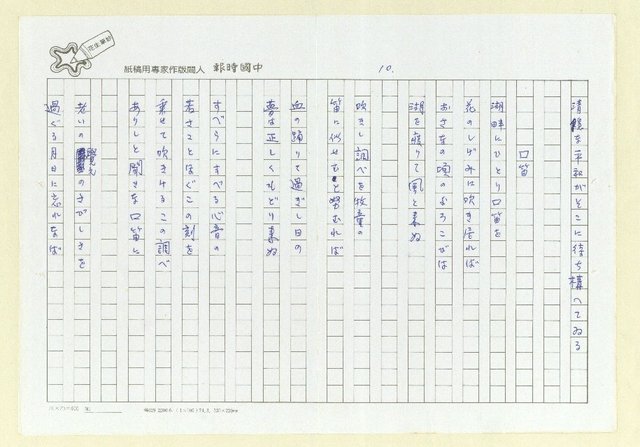 中國時報 人間版作家專用稿紙
10.
清穏な平和がそこに待ち構へてゐる
口笛
湖畔にひとり口笛を
花のしげみに吹き居れば
おさなの頃のよろこびは
湖を渡りて風と来ぬ
吹きし調べを牧童の
笛に似せむと努むれば
血の踊りて過ぎし日の
夢は正しくもどり来ぬ
すべらにすべる心音の
若さことほぐこの刻を
乗せて吹きけるこの調べ
ありしと聞きな口笛に
老いの覺えのさびしきを
過ぐる月日に忘れなば